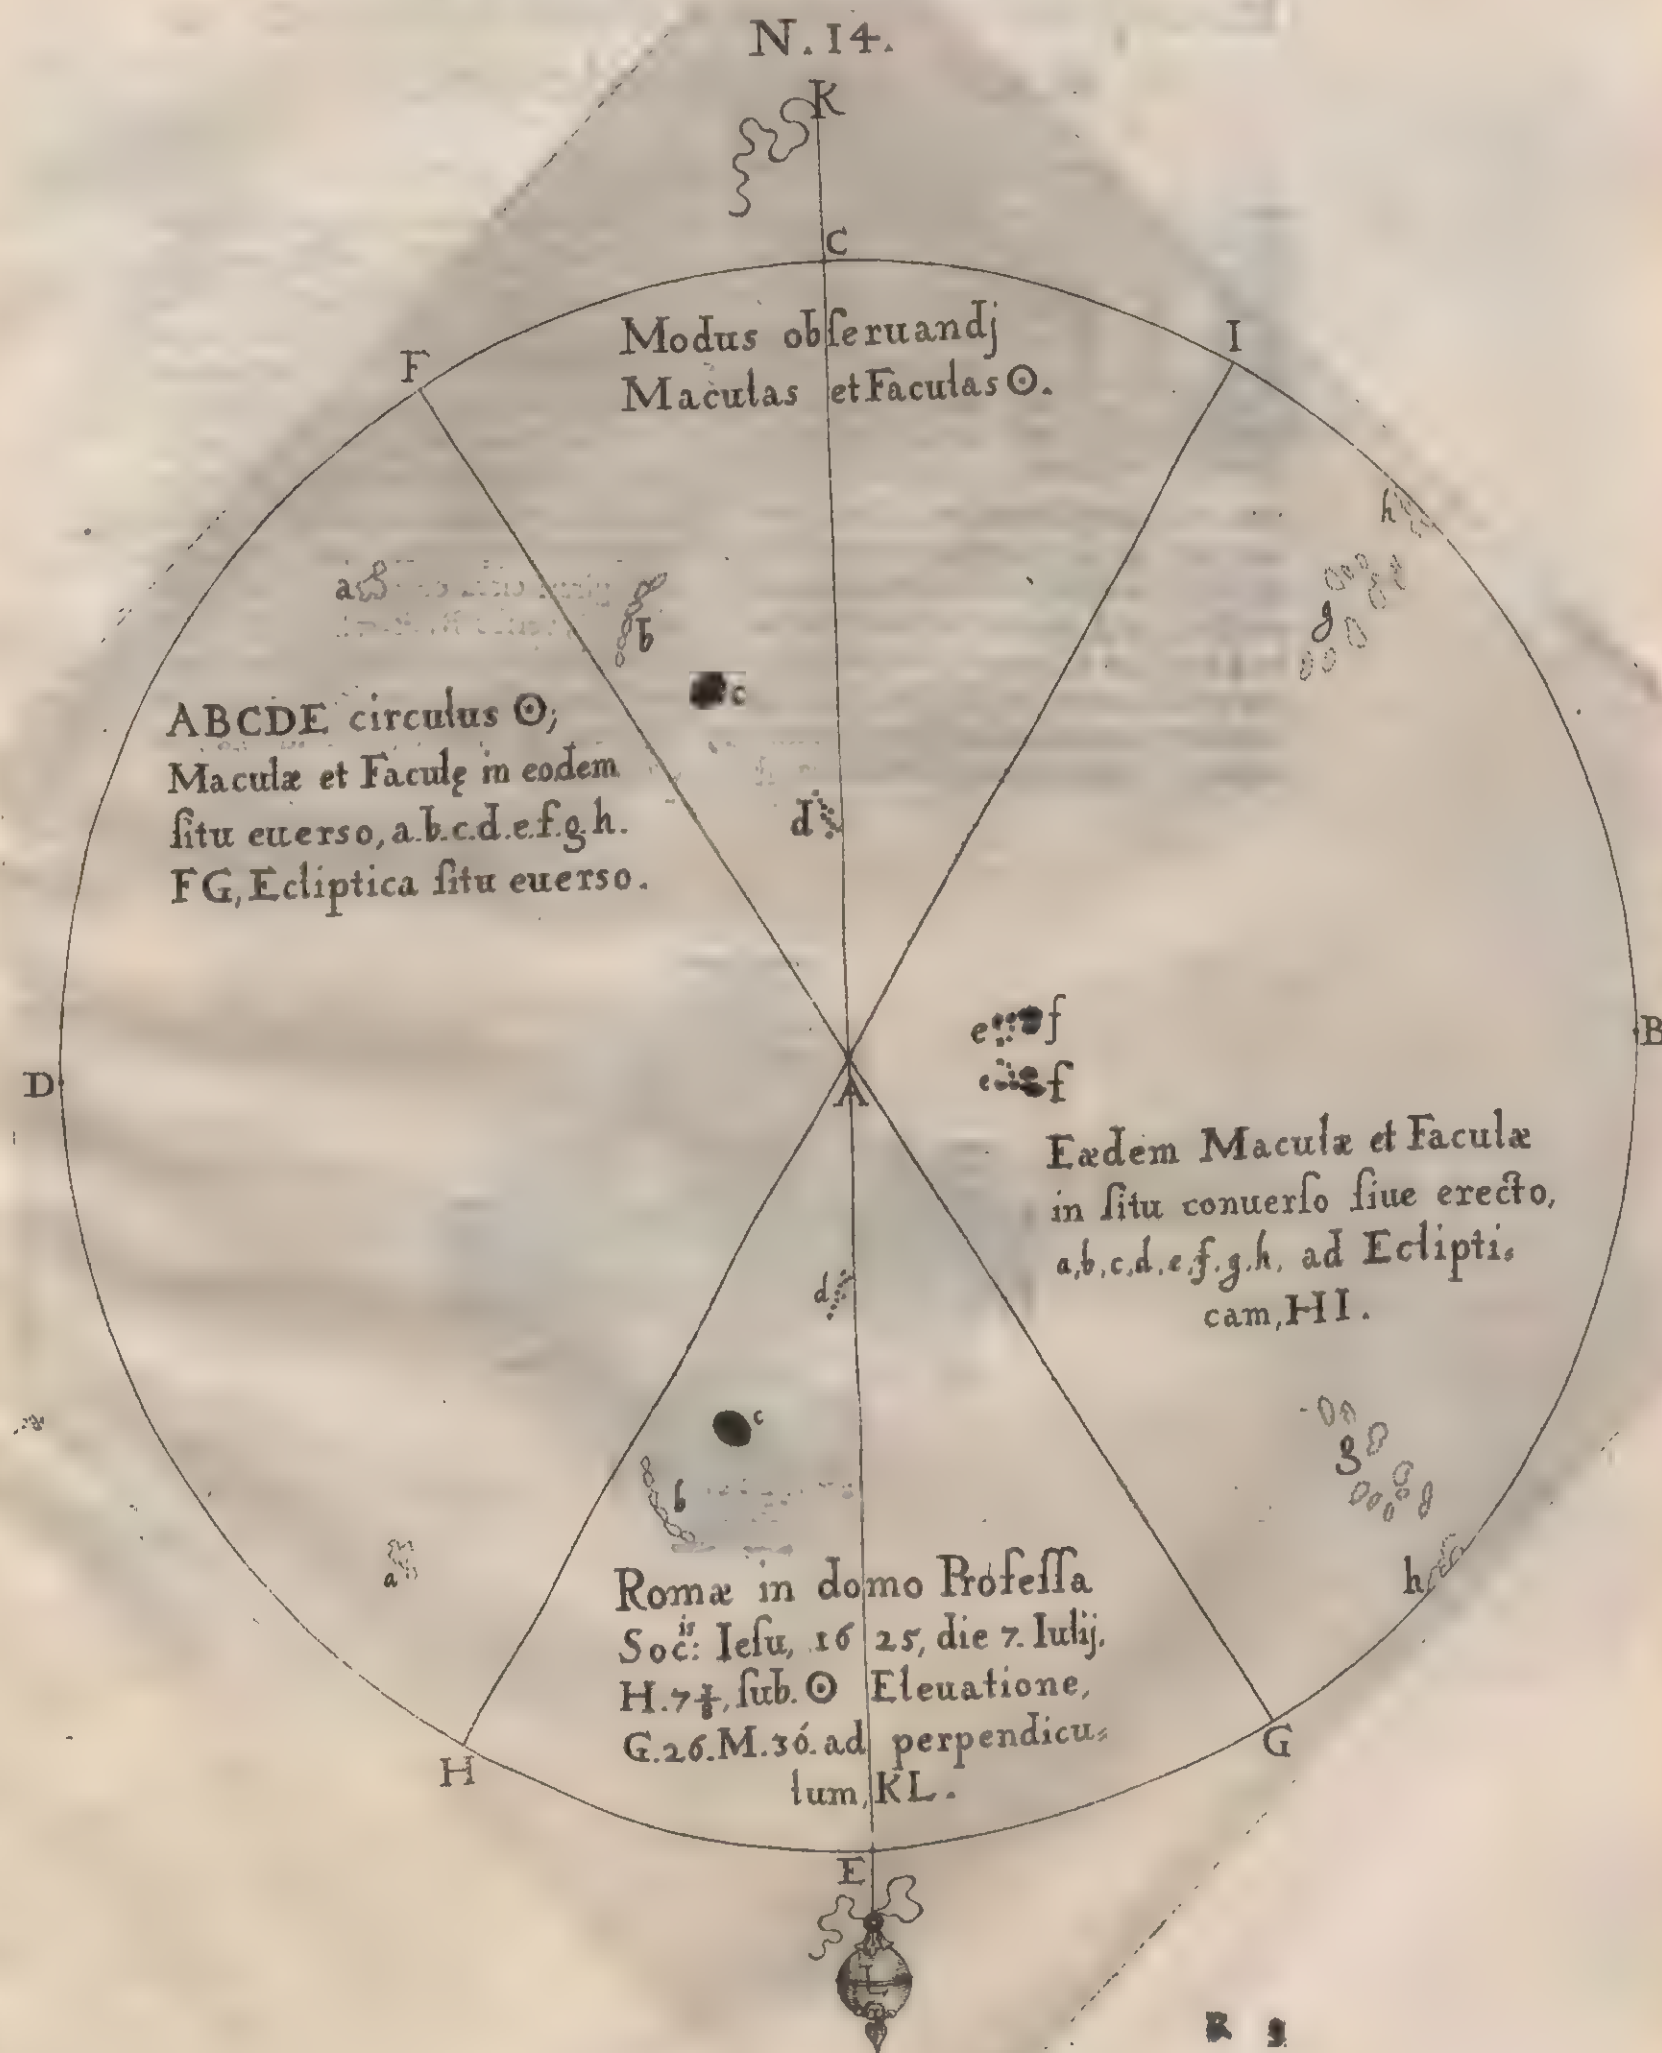 N.14.
K
C
Modus obſeruandj
Maculas et Faculas ☉.
F
I
h
a
b
g
c
ABCDE circulus ☉;
Maculæ et Faculę in eodem
ſitu euerso, a.b.c.d.e.f.g.h.
FG, Ecliptica ſitu euerso.
d
e f
e f
B
D
A
Eædem Maculæ et Faculæ
in ſitu conuerſo ſiue erecto,
a,b,c,d,e,f,g,h, ad Eclipti=
cam, HI.
d
c
g
b
a
h
Romæ in domo Profeſſa
Soc:is Ieſu, 1625, die 7. Iulij,
H.7⅞, ſub. ☉ Eleuatione,
G.26.M.36. ad perpendicu=
lum, KL.
H
G
E
L
R